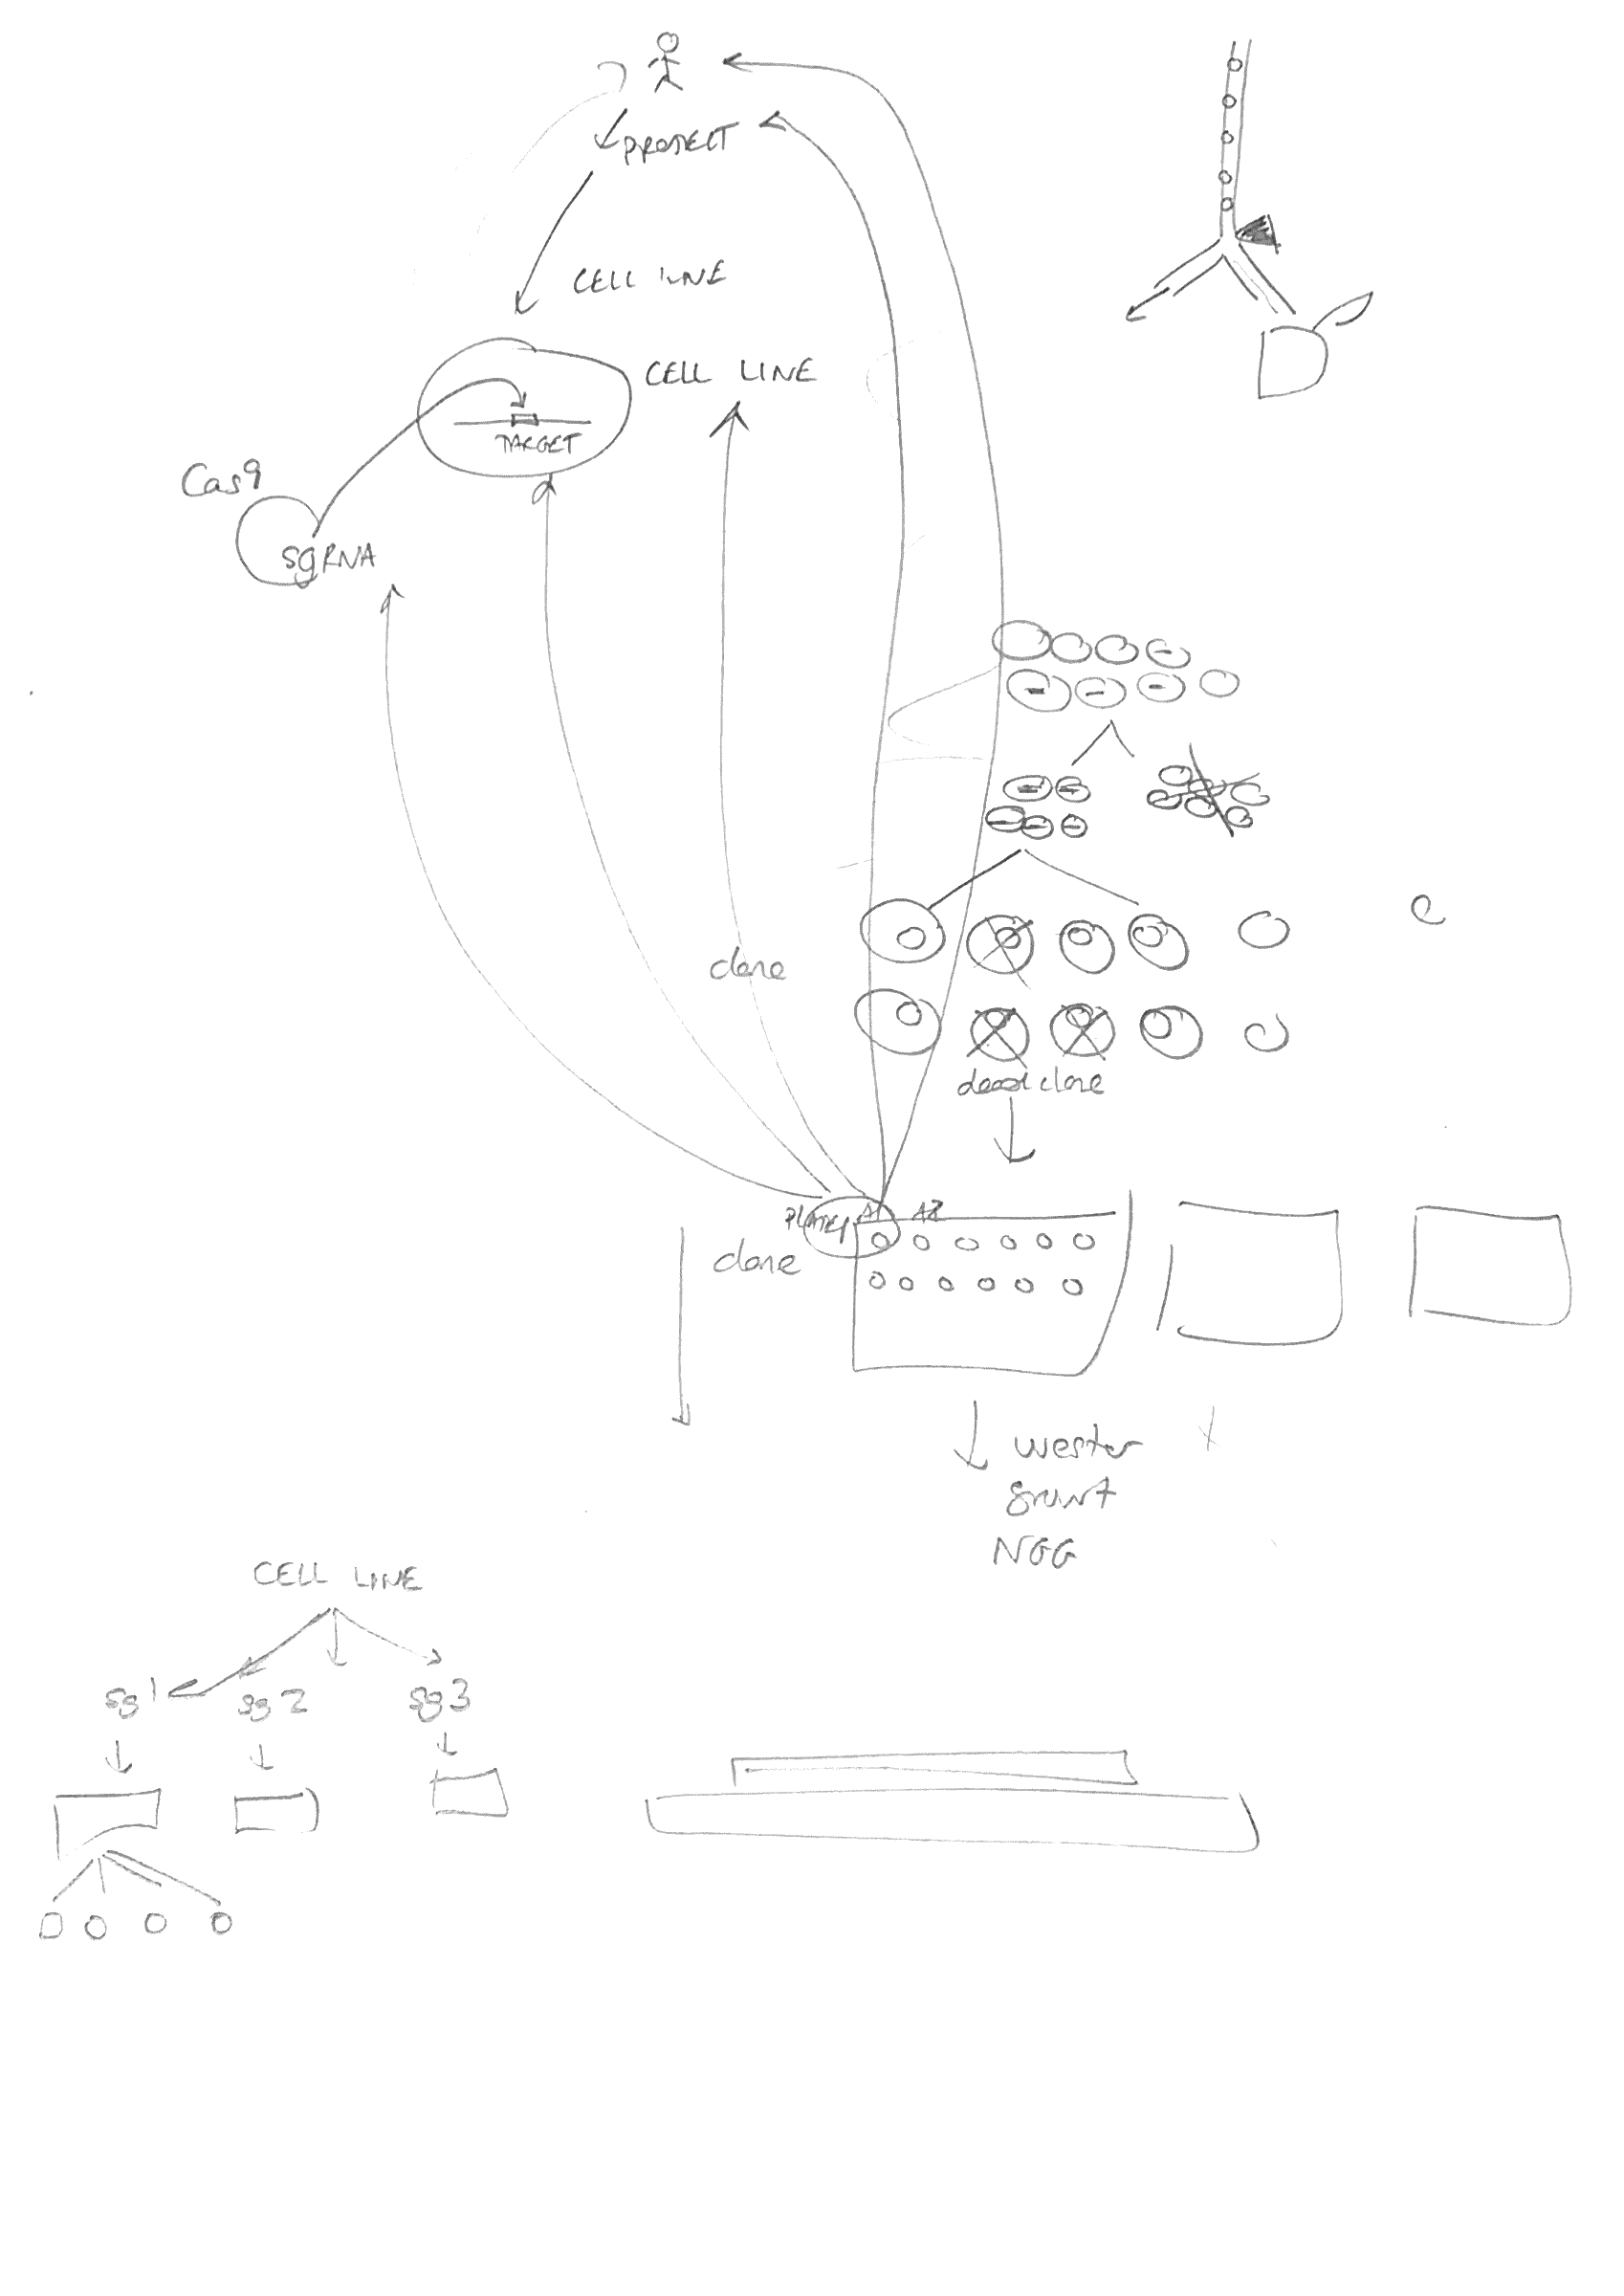 PROJECT
CELL LINE
CELL LINE
TARGET
Cas9
sgRNA
clone
dead clone
PLATE1 A1 A2
clone
wester
NGG
CELL LINE
sg1 sg2 sg3